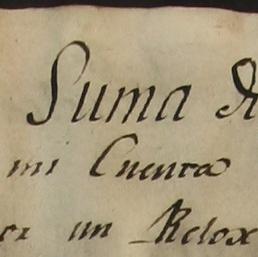 Suma
mi Cuenta
un Relox